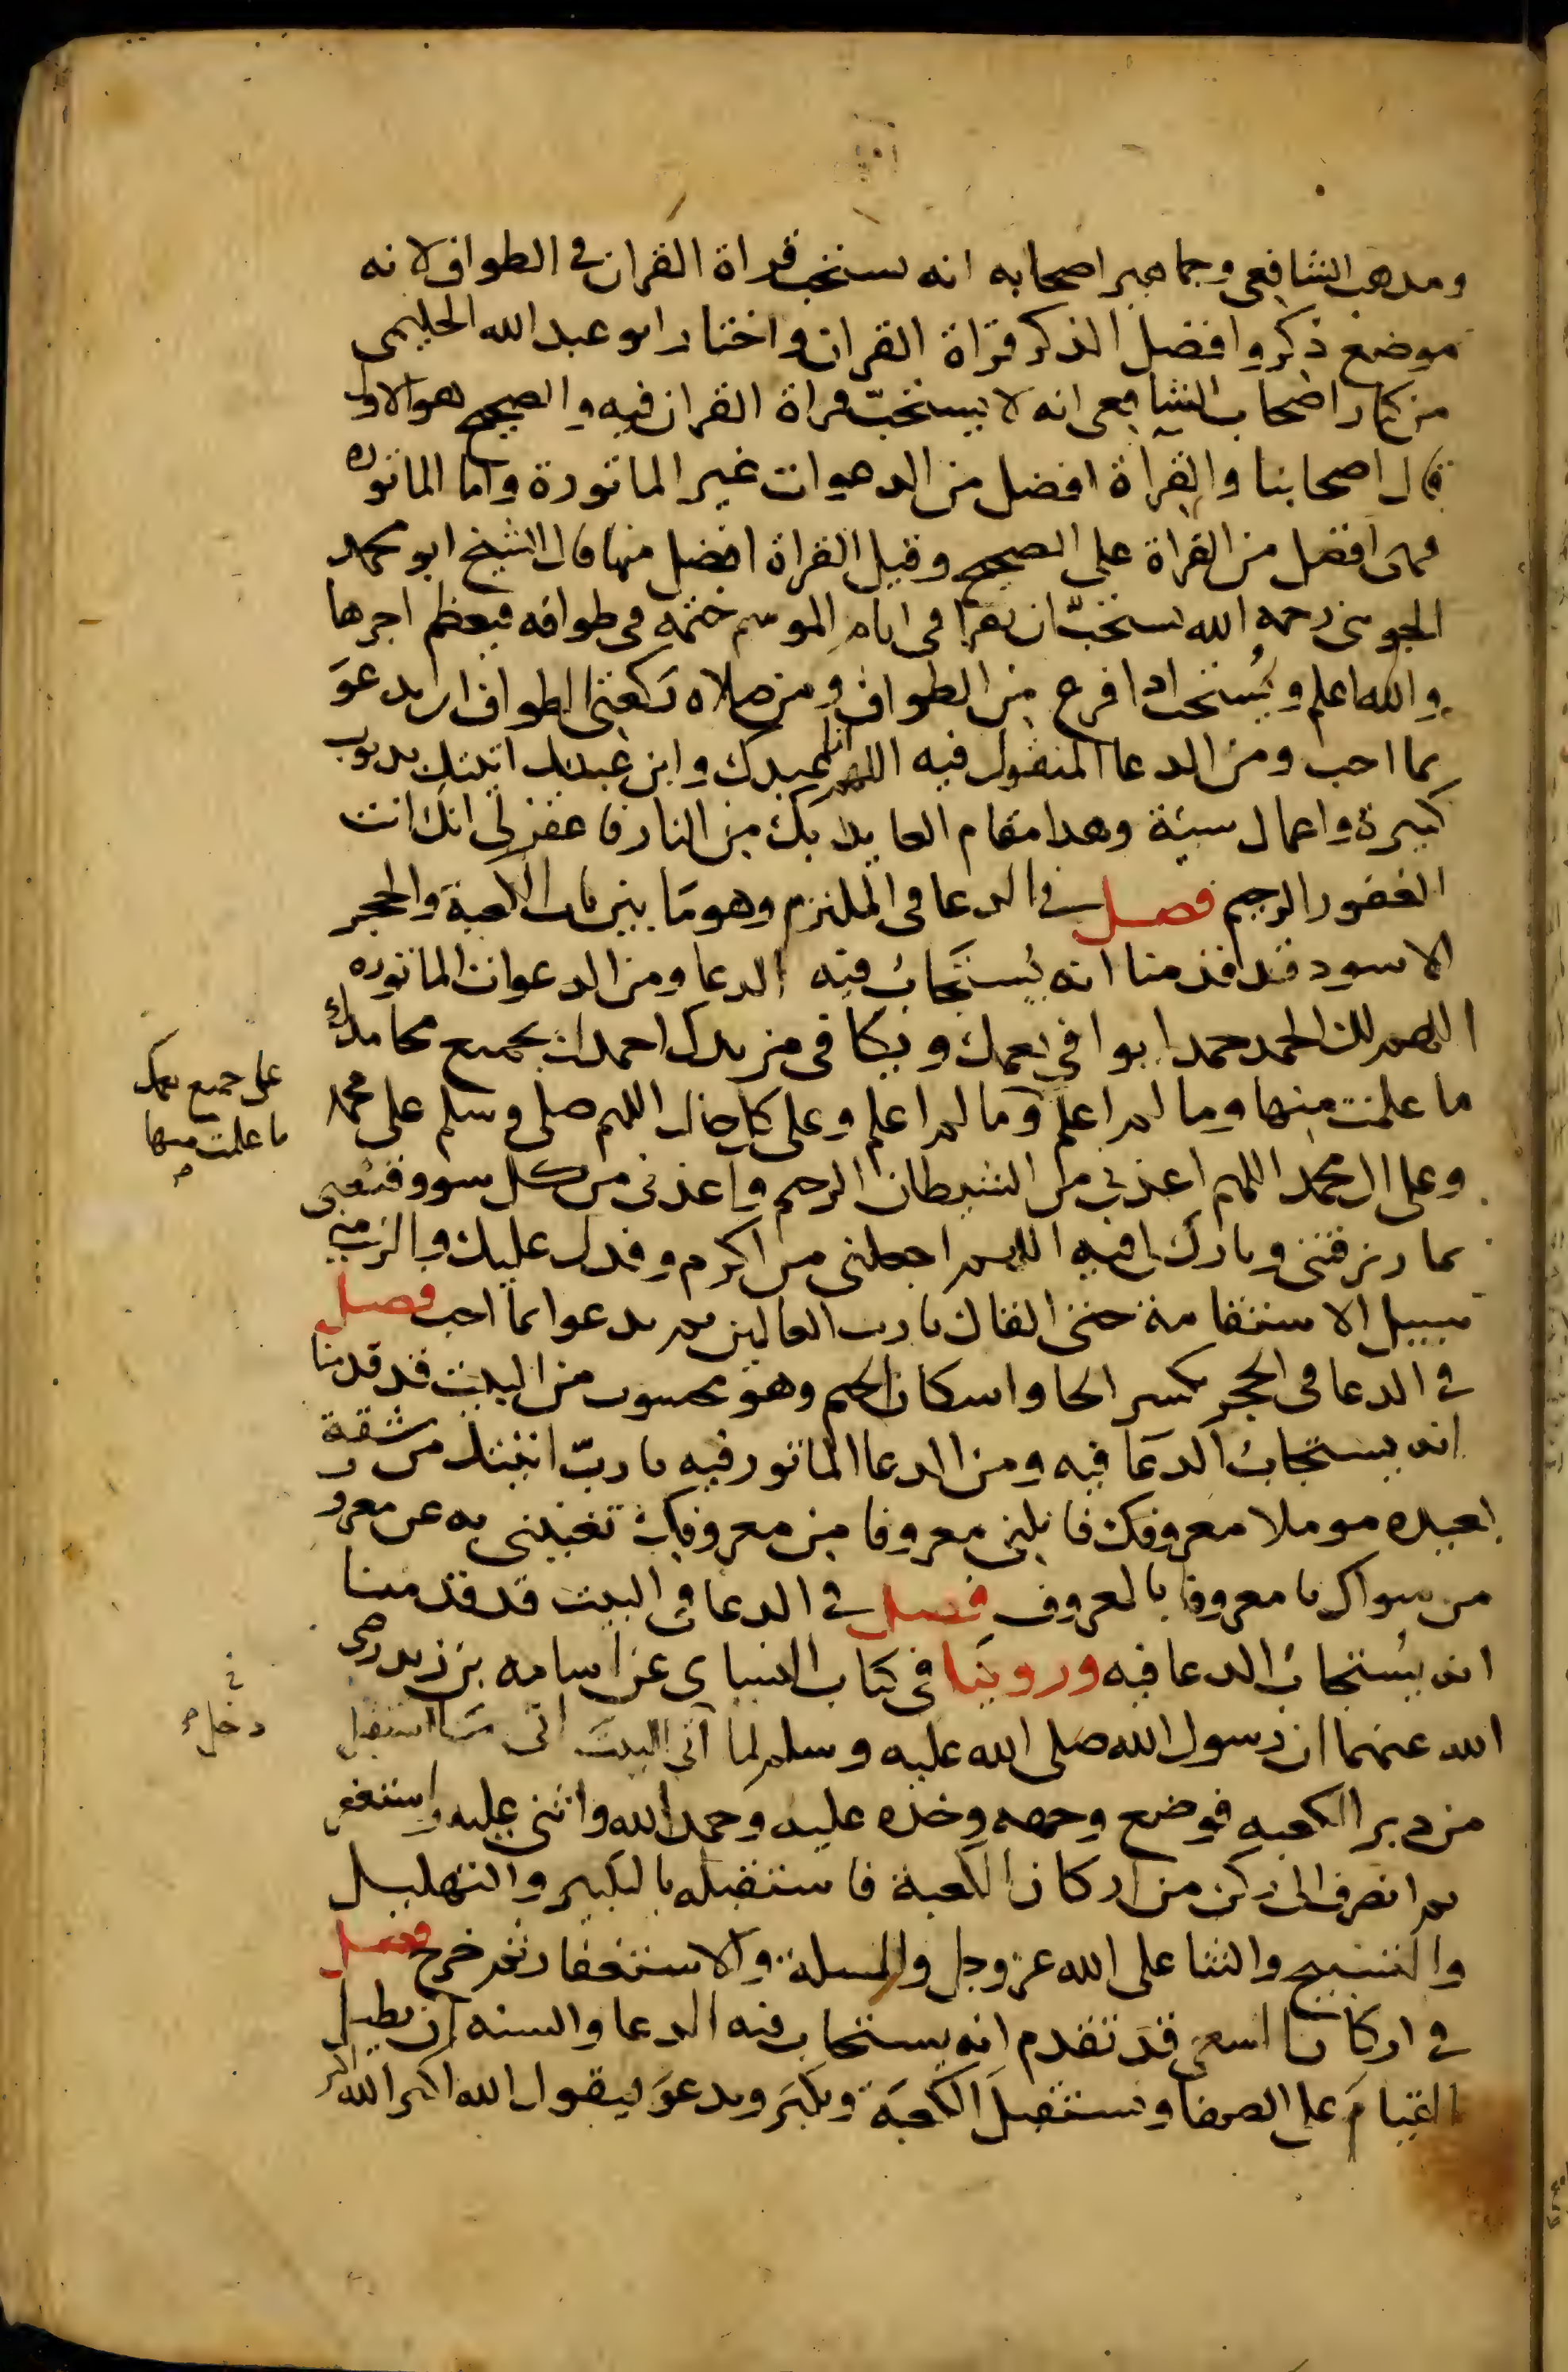 ومذهب الشافعي وجماهير اصحابه انه يستحب قراة القران في الطواف لانه
موضع ذكر وافضل الذكر قراة القران واختار ابو عبد الله الحليمي
من كبار اصحاب الشافعي انه لا يستحبّ قراة القران فيه والصحيح هو الاول
قال اصحابنا والقراة افضل من الدعوات غير الماثورة واما الماثوره
فهى افضل من القراة على الصحيح وقيل القراة افضل منها قال الشيخ ابو محمد
الجويني رحمه الله يستحبّ ان يقرا في ايام الموسم ختمة في طوافه فيعظم اجرها
والله اعلم ويُستحب اذا فرغ من الطواف ومن صلاه ركعتي الطواف ان يدعوَ
بما احب ومن الدعا المنقول فيه اللهم انا عبدك وابن عبدك اتيتك بذنوب
كبيرة واعمال سيئة وهذا مقام العايذ بك من النار فاغفر لي انك انت
الغفور الرحيم فصل في الدعا في الملتزم وهو مَا بين باب الكعبة والحجر
الاسود قد قدمنا انه يُستجابُ فيه الدعا ومن الدعوات الماثوره
اللهم لك الحمد حمدا يوافي نعمك ويكافي مزيدك احمدك بجميع محامدك
ما علمت منها وما لم اعلم وما لم اعلم وعلى كل حال اللهم صلي وسلم على محمد
على جميع نعمك
ما علمت منها
وعلى ال محمد اللهم اعذني من الشيطان الرجيم واعذني من كل سوو قنعني
بما رزقتني وبارك لي فيه اللهم اجعلني من اكرم وفدك عليك والزمني
سبيل الاستقامة حتى القاك يا رب العالمين ثم يدعوا بما احب فصل
في الدعا في الحجر بكسر الحا واسكان الجيم وهو محسوب من البيت قد قدمنا
انه يستجابُ الدعَا فيه ومن الدعا الماثور فيه يا ربّ اتيتك من شقة
بعيده موملا معروفك فانلني معروفا من معروفك تغنيني به عن معرو
من سواك يا معروفا بالمعروف فصل في الدعا في البيت قد قدمنا
انه يُستجابُ الدعا فيه وروينَا في كتاب النساى عن اسامه بن زيد رضى
الله عنهما ان رسول الله صلى الله عليه وسلم لما اتى البيت اتى مَا استقبل
دخل
من دبر الكعبه فوضع وجهه وخده عليه وحمد الله واثنى عليه واستغفر
ثم انصرف الى ركن من اركان الكعبة فاستقبله بالتكبير والتهليل
والتسبيح والثنا على الله عز وجل والمسلة والاستغفار ثم خرج فصل
في اركان السعي قد تقدم انه يستجاب فيه الدعا والسنه ان يطيل
القيامَ على الصفا ويستقبلَ الكعبَة ويكبَر ويدعوَ ليقول الله اكبر الله اكبر